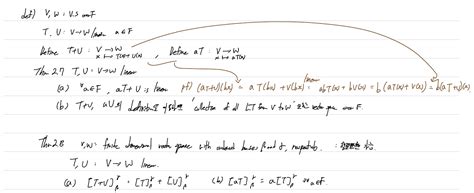 def) V, W : V.S over F
T, U : V→W linear a∈F
Define T+U : V→W , Define aT : V→W
x ↦ T(x)+U(x) x ↦ aT(x)
Thm 2.7 T, U : V→W linear
(a) ∀a∈F, aT+U is linear pf) (aT+U)(bx) = aT(bx) + U(bx) = abT(x) + bU(x) = b(aT(x)+U(x)) = b(aT+U)(x)
(b) T+U, aU collection of all LT from V to W vector space over F.
Thm 2.8 V, W : finite dimensional vector space with ordered bases β and γ, respectively.
T, U : V→W linear.
(a) [T+U]_β^γ = [T]_β^γ + [U]_β^γ (b) [aT]_β^γ = a[T]_β^γ ∀a∈F.